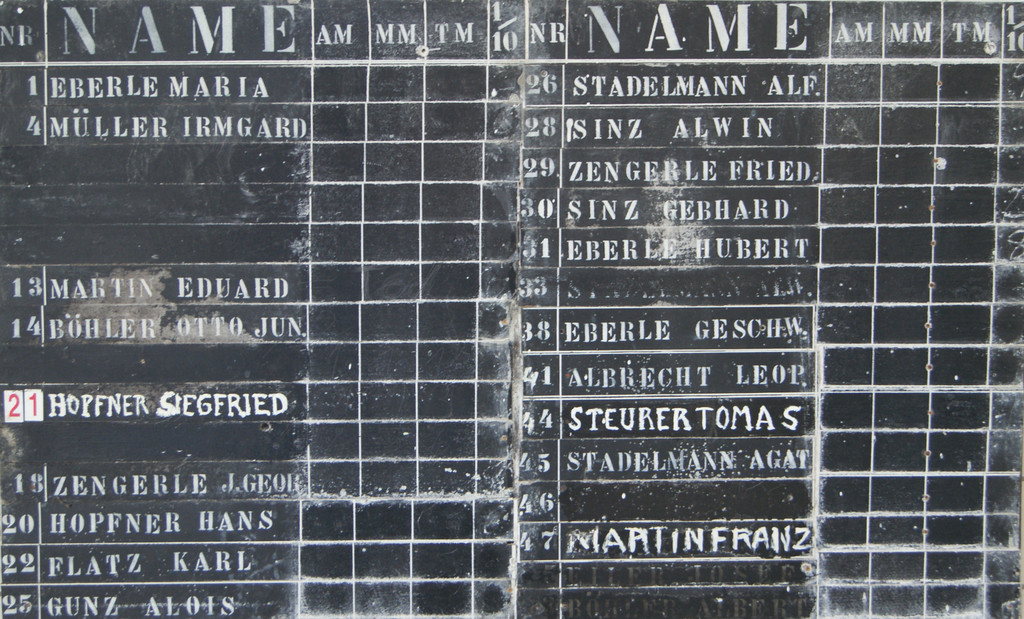 NR NAME AM MM TM 1/10
1 EBERLE MARIA
4 MÜLLER IRMGARD
13 MARTIN EDUARD
14 BÖHLER OTTO JUN.
21 HOPFNER SIEGFRIED
18 ZENGERLE J.GEOR
20 HOPFNER HANS
22 FLATZ KARL
25 GUNZ ALOIS
NR NAME AM MM TM 1/10
26 STADELMANN ALF.
28 SINZ ALWIN
29 ZENGERLE FRIED.
30 SINZ GEBHARD
31 EBERLE HUBERT
33 STADELMANN ALW.
38 EBERLE GESCHW.
41 ALBRECHT LEOP.
44 STEURER TOMAS
45 STADELMANN AGAT
46
47 MARTIN FRANZ
JOSEF
BÖHLER ALBERT